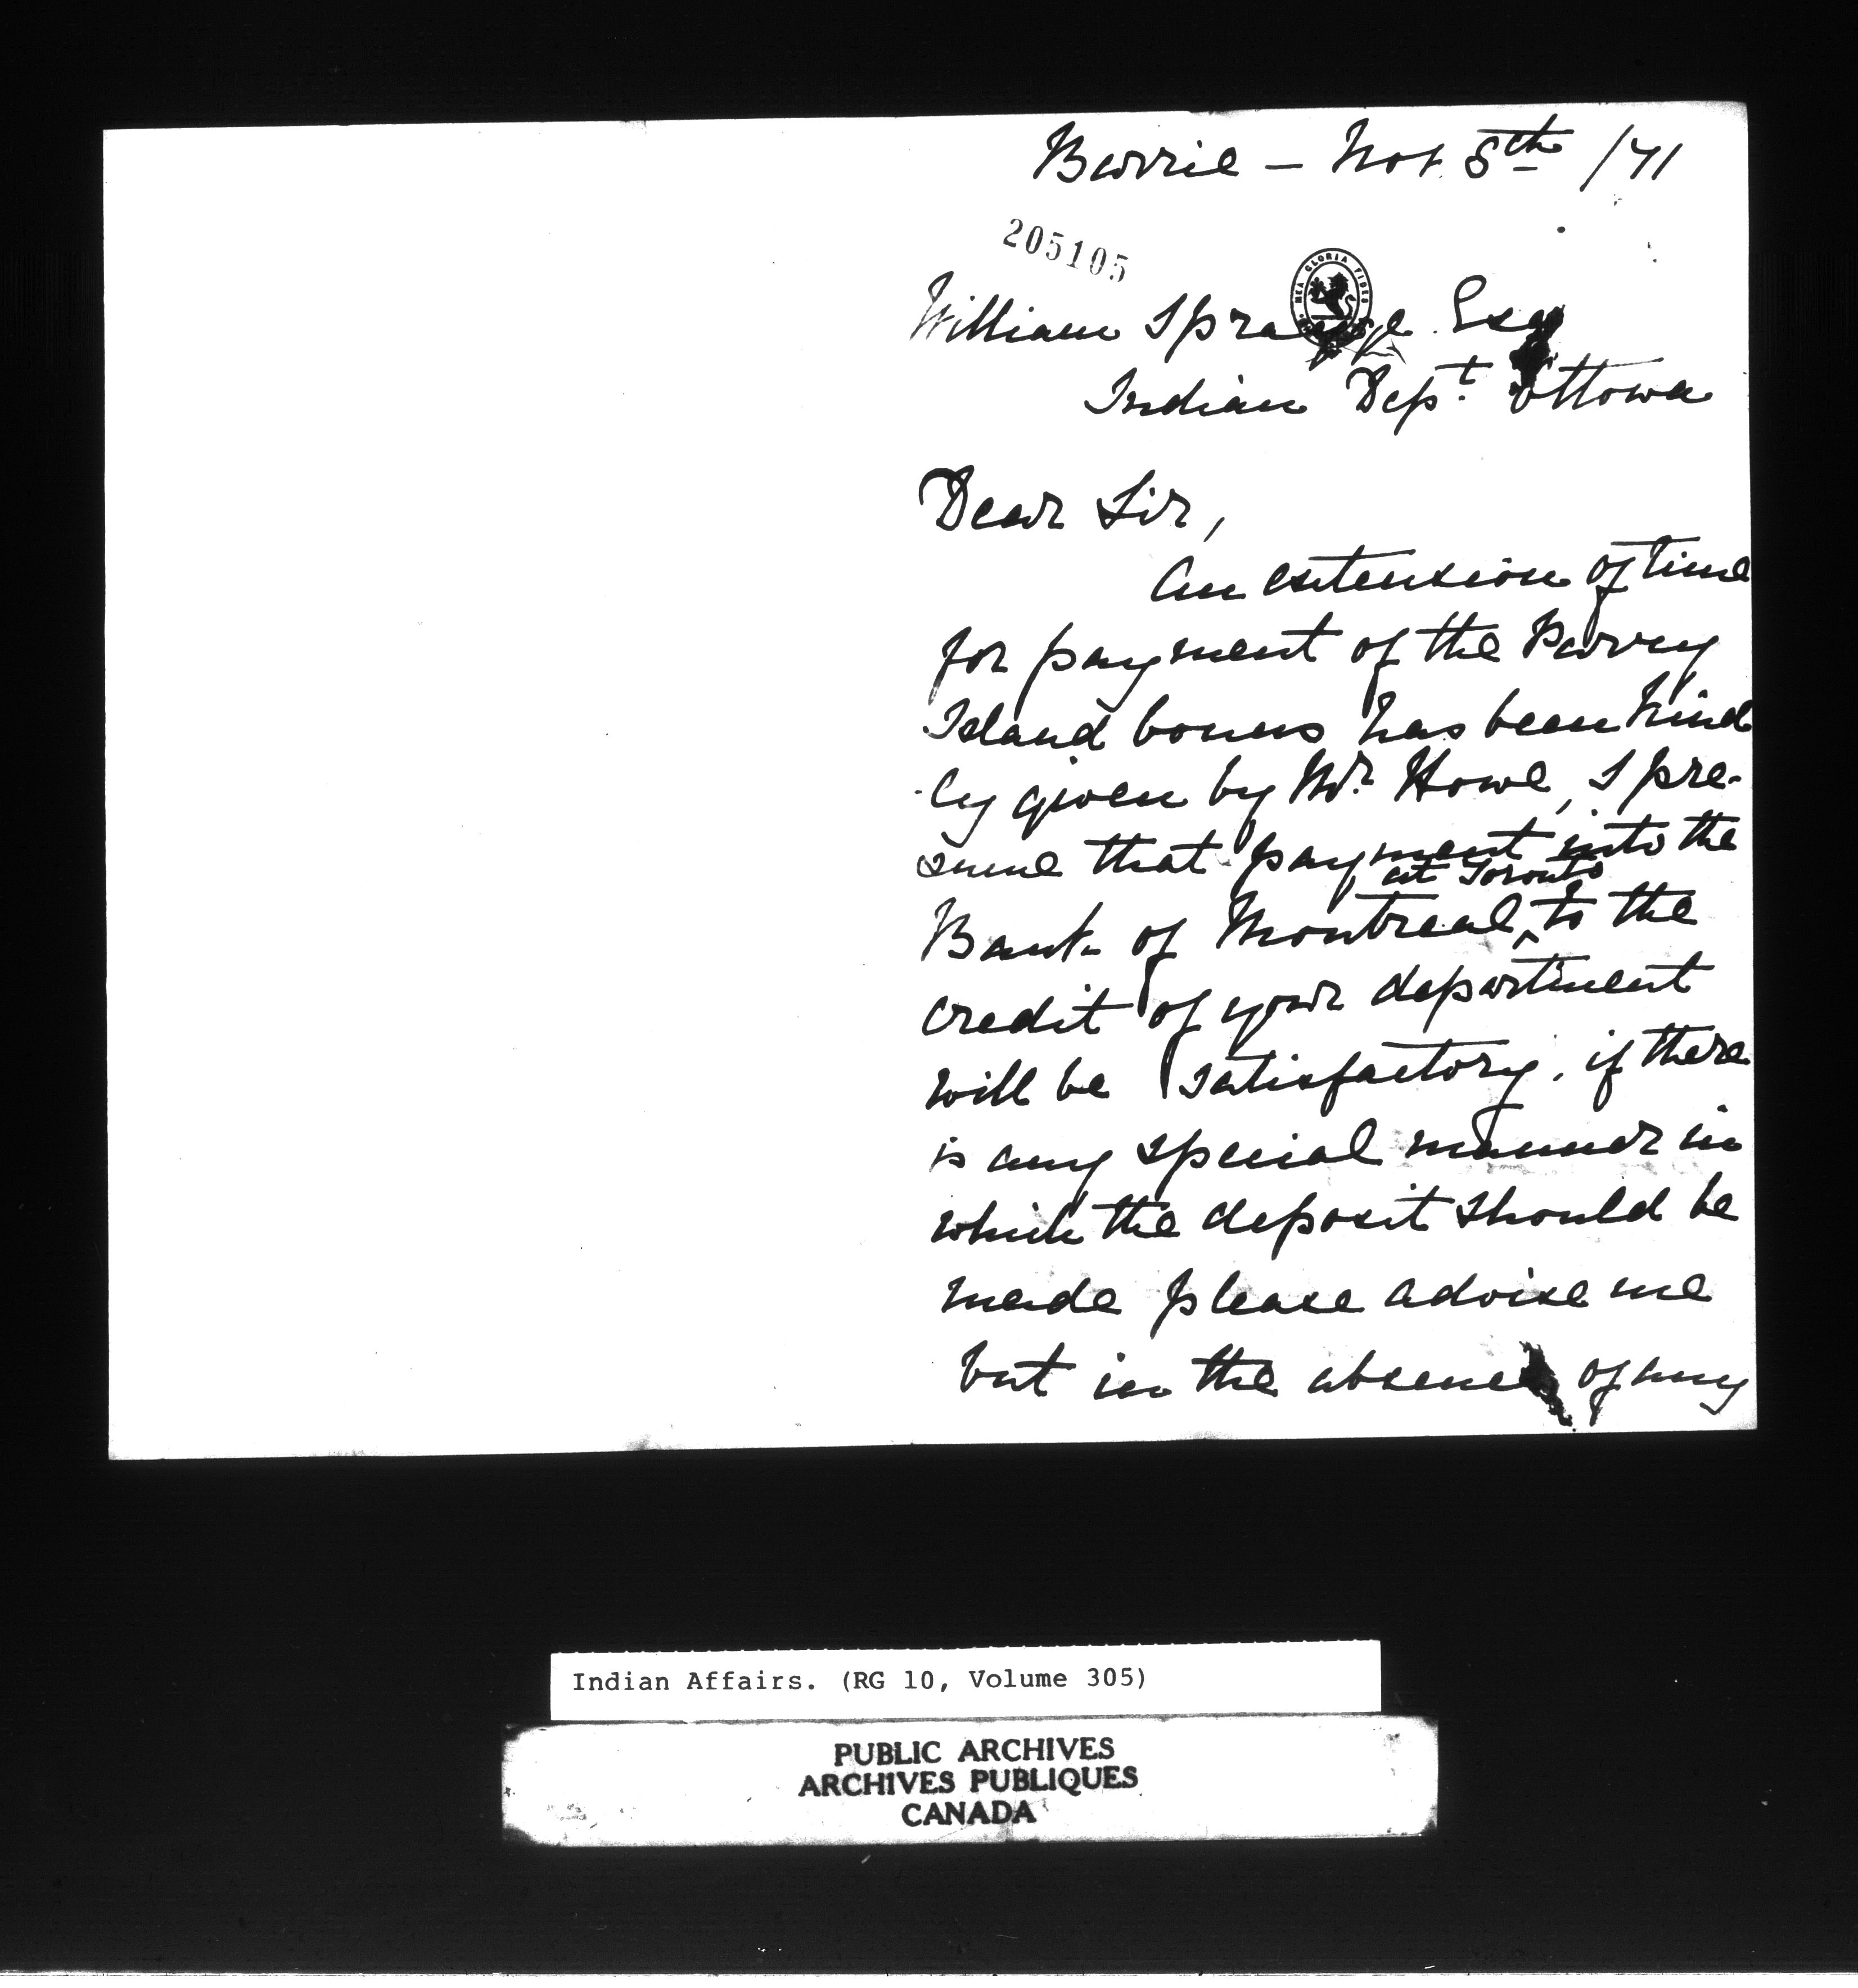 Barrie - Nov. 8th /71
205105
MEA GLORIA FIDES
William Spragge Esq
Indian Dept. Ottowa
Dear Sir,
An extension of time
for payment of the Parry
Island bonus has been kind
-ly given by Mr. Howe, I pre-
sume that payment into the
at Toronto
Bank of Montreal ^ to the
credit of your department
will be satisfactory, if there
is any special manner in
which the deposit should be
made please advise me
but in the absence of any
Indian Affairs. (RG 10, Volume 305)
PUBLIC ARCHIVES
ARCHIVES PUBLIQUES
CANADA